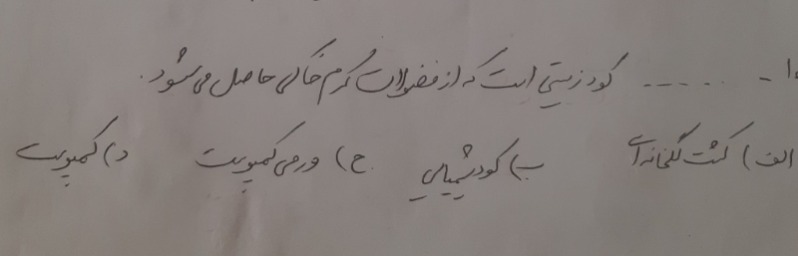 ۱- ...... کود زیستی است که از فضولات کرم خاکی حاصل می‌شود.
الف) کشت گلخانه‌ای ب) کود شیمیایی ج) ورمی کمپوست د) کمپوست